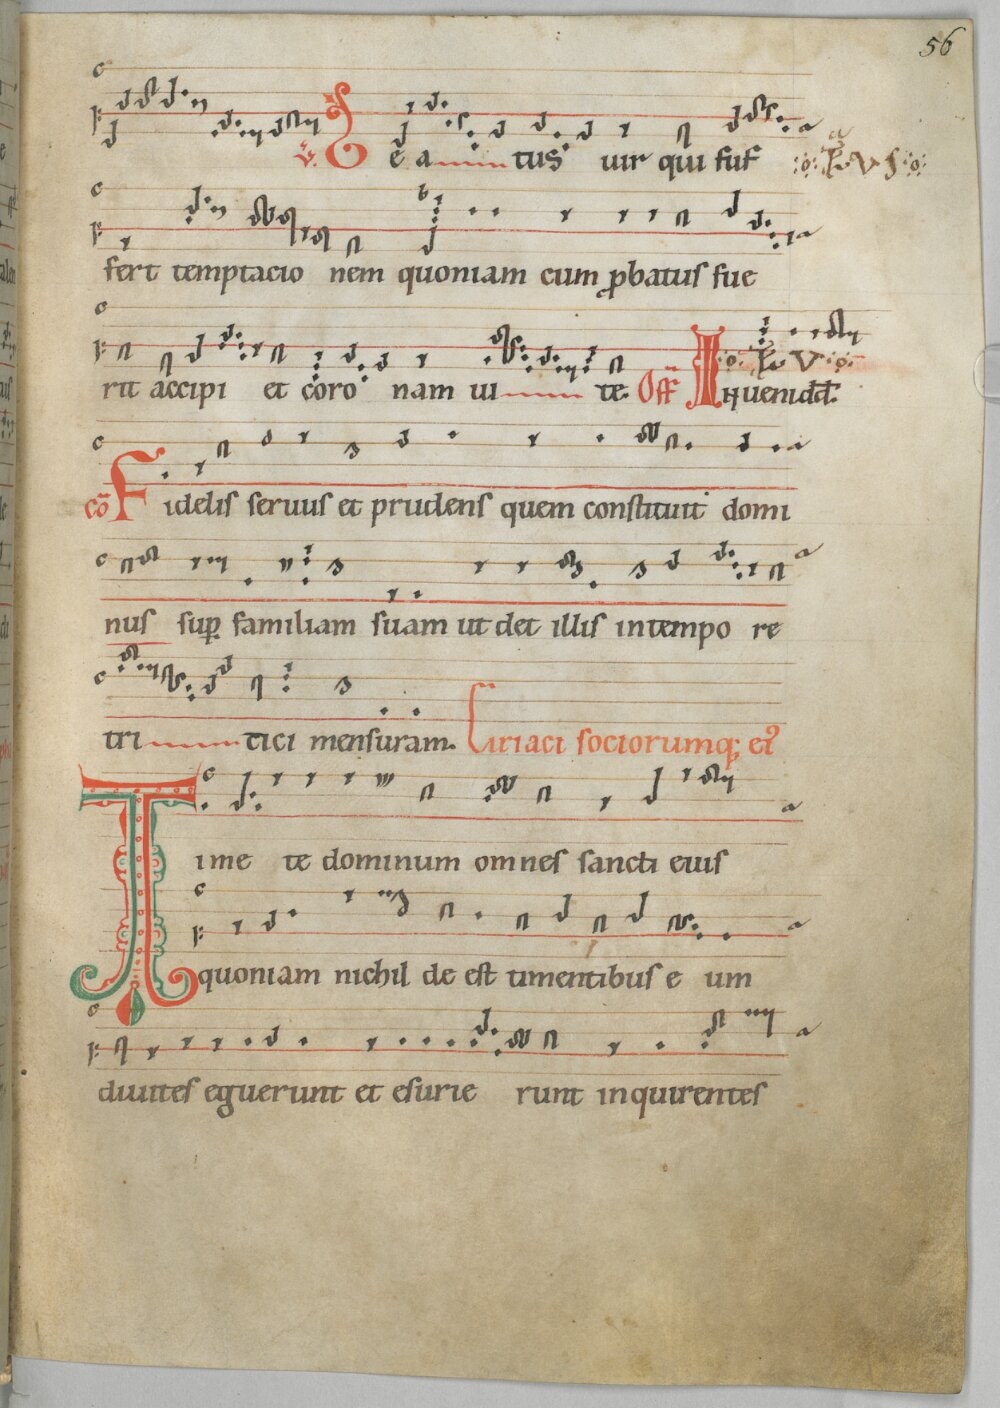 56
℣. Be atus uir qui suf
fert temptacio nem quoniam cum ꝓbatus fue
rit accipi et coro nam ui te. Off̄ Inueni dd̄.
cō Fidelis seruus et prudens quem constituit domi
nus suꝑ familiam suam ut det illis in tempo re
tri tici mensuram. Ciriaci sociorumq; ei᾿
Time te dominum omnes sancti eius
quoniam nichil de est timentibus e um
diuites eguerunt et esurie runt inquirentes